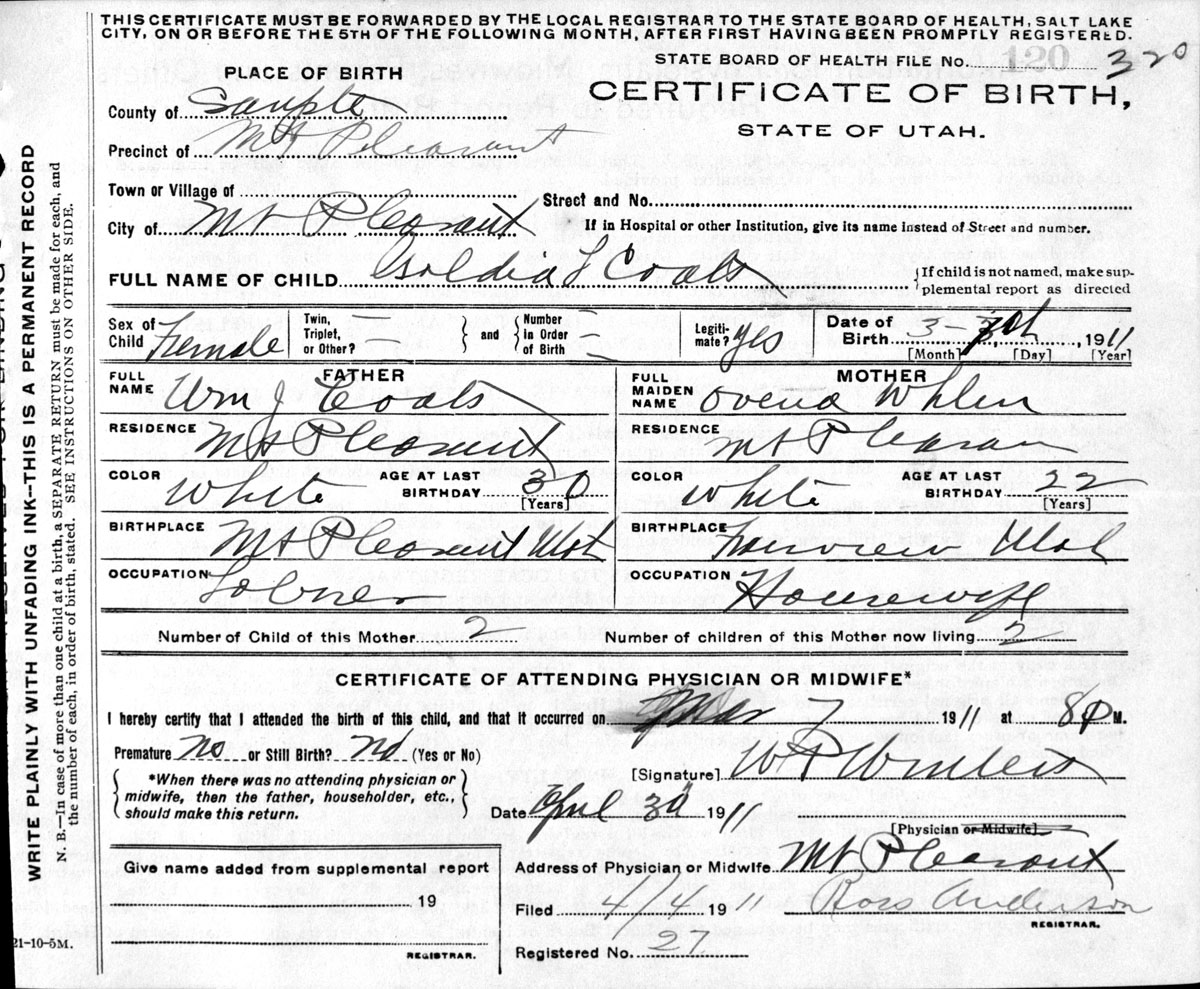 THIS CERTIFICATE MUST BE FORWARDED BY THE LOCAL REGISTRAR TO THE STATE BOARD OF HEALTH, SALT LAKE
CITY, ON OR BEFORE THE 5TH OF THE FOLLOWING MONTH, AFTER FIRST HAVING BEEN PROMPTLY REGISTERED.
STATE BOARD OF HEALTH FILE No. 120 320
PLACE OF BIRTH
CERTIFICATE OF BIRTH,
STATE OF UTAH.
County of Sanpete
Precinct of Mt Pleasant
Town or Village of
Street and No.
City of Mt Pleasant
If in Hospital or other Institution, give its name instead of Street and number.
FULL NAME OF CHILD Goldia L Coats
{If child is not named, make sup-
plemental report as directed
Sex of Child Female
Twin, Triplet, or Other? —
and
Number in Order of Birth —
Legiti-mate? Yes
Date of Birth 3 – 1911
[Month] [Day] [Year]
FATHER
MOTHER
FULL NAME Wm J Coats
FULL MAIDEN NAME Ovena Whlen
RESIDENCE Mt Pleasant
RESIDENCE Mt Pleasan
COLOR White AGE AT LAST BIRTHDAY 30 [Years]
COLOR White AGE AT LAST BIRTHDAY 22 [Years]
BIRTHPLACE Mt Pleasant Utah
BIRTHPLACE Fairview Utah
OCCUPATION Lobrer
OCCUPATION Housewife
Number of Child of this Mother 2
Number of children of this Mother now living 2
CERTIFICATE OF ATTENDING PHYSICIAN OR MIDWIFE*
I hereby certify that I attended the birth of this child, and that it occurred on Mar 7 1911 at 8 M.
Premature? no or Still Birth? no (Yes or No)
{*When there was no attending physician or
midwife, then the father, householder, etc.,
should make this return.}
[Signature] W P Winters
Date April 3d 1911
[Physician or Midwife]
Give name added from supplemental report
19
REGISTRAR.
Address of Physician or Midwife Mt Pleasant
Filed 4/4 1911 Ross Anderson
REGISTRAR.
Registered No. 27
21-10-5M.
WRITE PLAINLY WITH UNFADING INK—THIS IS A PERMANENT RECORD
N. B.—In case of more than one child at a birth, a SEPARATE RETURN must be made for each, and
the number of each, in order of birth, stated. SEE INSTRUCTIONS ON OTHER SIDE.